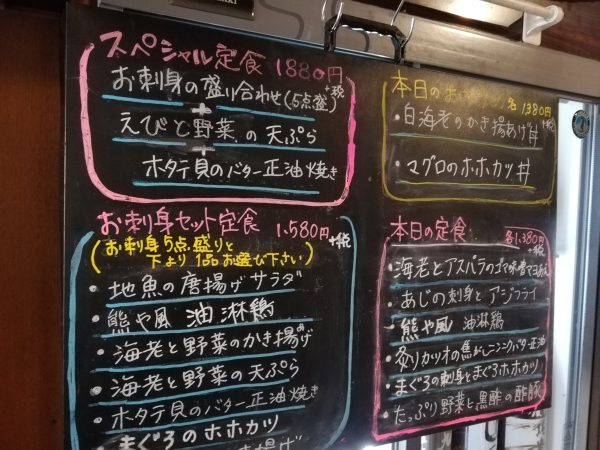 スペシャル定食 1880円
+税
お刺身の盛り合わせ(5点盛)
+
えびと野菜の天ぷら
+
ホタテ貝のバター正油焼き
お刺身セット定食 1.580円
+税
(お刺身5点盛りと
下より1品お選び下さい)
・地魚の唐揚げサラダ
・熊や風 油淋鶏
・海老と野菜のかき揚げ
・海老と野菜の天ぷら
・ホタテ貝のバター正油焼き
・まぐろのホホカツ
揚げ
本日のお 各1380円
+税
・白海老のかき揚あげ丼
・マグロのホホカツ丼
本日の定食 各1.380円
+税
・海老とアスパラのゴマ味噌マヨ
・あじの刺身とアジフライ
・熊や風 油淋鶏
・炙りカツオの焦がしニンニクバター正油
・まぐろの刺身とまぐろホホカツ
・たっぷり野菜と黒酢の酢豚